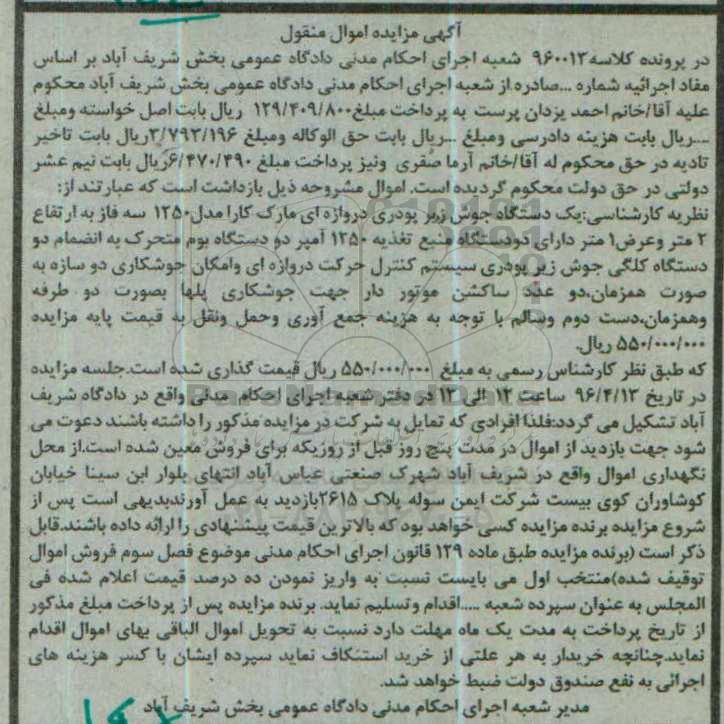 آگهی مزایده اموال منقول
در پرونده کلاسه ۹۶۰۰۱۳ شعبه اجرای احکام مدنی دادگاه عمومی بخش شریف آباد بر اساس
مفاد اجرائیه شماره ...صادره از شعبه اجرای احکام مدنی دادگاه عمومی بخش شریف آباد محکوم
علیه آقا/خانم احمد یزدان پرست به پرداخت مبلغ۱۲۹/۴۰۹/۸۰۰ ریال بابت اصل خواسته ومبلغ
....ریال بابت هزینه دادرسی ومبلغ ...ریال بابت حق الوکاله ومبلغ ۳/۷۹۳/۱۹۶ریال بابت تاخیر
تادیه در حق محکوم له آقا/خانم آرما صفری ونیز پرداخت مبلغ ۶/۴۷۰/۴۹۰ریال بابت نیم عشر
دولتی در حق دولت محکوم گردیده است. اموال مشروحه ذیل بازداشت است که عبارتند از:
نظریه کارشناسی:یک دستگاه جوش زیر پودری دروازه ای مارک کارا مدل۱۲۵۰ سه فاز به ارتفاع
۲ متر وعرض۱ متر دارای دودستگاه منبع تغذیه ۱۲۵۰ آمپر دو دستگاه بوم متحرک به انضمام دو
دستگاه کلگی جوش زیر پودری سیستم کنترل حرکت دروازه ای وامکان جوشکاری دو سازه به
صورت همزمان،دو عدد ساکشن موتور دار جهت جوشکاری پلها بصورت دو طرفه
وهمزمان،دست دوم وسالم با توجه به هزینه جمع آوری وحمل ونقل به قیمت پایه مزایده
۵۵۰/۰۰۰/۰۰۰ ریال.
که طبق نظر کارشناس رسمی به مبلغ ۵۵۰/۰۰۰/۰۰۰ ریال قیمت گذاری شده است.جلسه مزایده
در تاریخ ۹۶/۴/۱۳ ساعت ۱۲ الی ۱۳ در دفتر شعبه اجرای احکام مدنی واقع در دادگاه شریف
آباد تشکیل می گردد:فلذا افرادی که تمایل به شرکت در مزایده مذکور را داشته باشند دعوت می
شود جهت بازدید از اموال در مدت پنج روز قبل از روزیکه برای فروش معین شده است.از محل
نگهداری اموال واقع در شریف آباد شهرک صنعتی عباس آباد انتهای بلوار ابن سینا خیابان
کوشاوران کوی بیست شرکت ایمن سوله پلاک ۲۶۱۵بازدید به عمل آورندبدیهی است پس از
شروع مزایده برنده مزایده کسی خواهد بود که بالاترین قیمت پیشنهادی را ارائه داده باشند.قابل
ذکر است (برنده مزایده طبق ماده ۱۲۹ قانون اجرای احکام مدنی موضوع فصل سوم فروش اموال
توقیف شده)منتخب اول می بایست نسبت به واریز نمودن ده درصد قیمت اعلام شده فی
المجلس به عنوان سپرده شعبه .....اقدام وتسلیم نماید. برنده مزایده پس از پرداخت مبلغ مذکور
از تاریخ پرداخت به مدت یک ماه مهلت دارد نسبت به تحویل اموال الباقی بهای اموال اقدام
نماید.چنانچه خریدار به هر علتی از خرید استنکاف نماید سپرده ایشان با کسر هزینه های
اجرائی به نفع صندوق دولت ضبط خواهد شد.
مدیر شعبه اجرای احکام مدنی دادگاه عمومی بخش شریف آباد